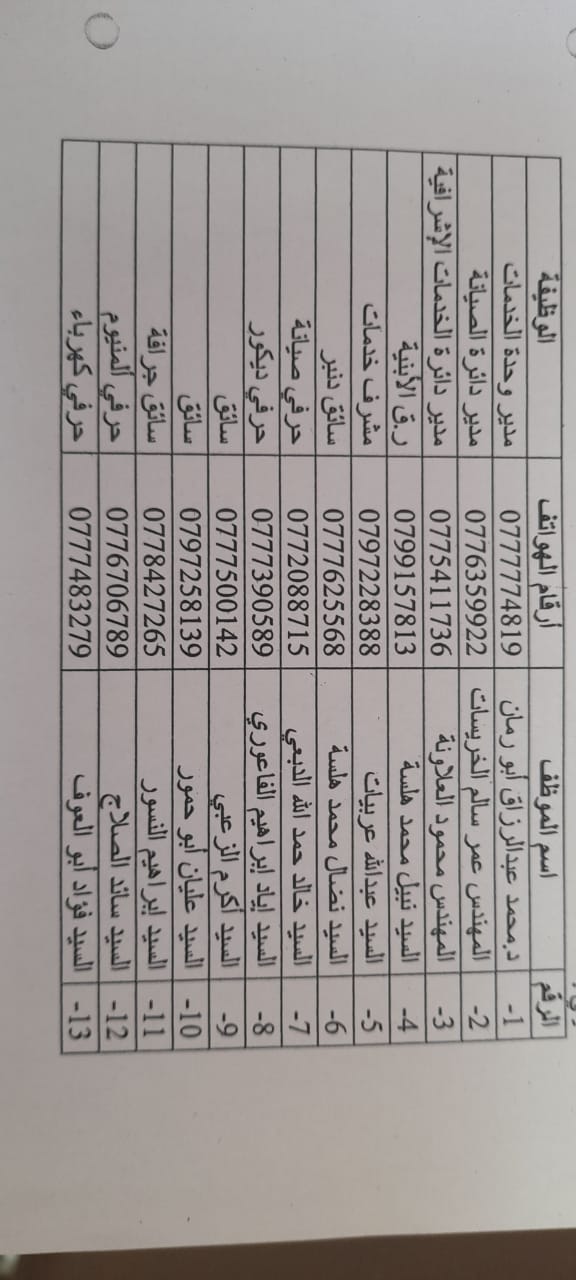 الرقم اسم الموظف أرقام الهواتف الوظيفة
1- د.محمد عبدالرزاق أبو رمان 0777774819 مدير وحدة الخدمات
2- المهندس عمر سالم الخريسات 0776359922 مدير دائرة الصيانة
3- المهندس محمود العلاونة 0775411736 مدير دائرة الخدمات الإشرافية
4- السيد نبيل محمد هلسة 0799157813 ر.ق الأبنية
5- السيد عبدالله عربيات 0797228388 مشرف خدمات
6- السيد نضال محمد هلسة 0777625568 سائق دنبر
7- السيد خالد حمد الله الدبعي 0772088715 حرفي صيانة
8- السيد اياد ابراهيم الفاعوري 0777390589 حرفي ديكور
9- السيد أكرم الزعبي 0777500142 سائق
10- السيد عليان أبو حمور 0797258139 سائق
11- السيد ابراهيم النسور 0778427265 سائق جرافة
12- السيد سائد الصلاج 0776706789 حرفي ألمنيوم
13- السيد فؤاد أبو العوف 0777483279 حرفي كهرباء